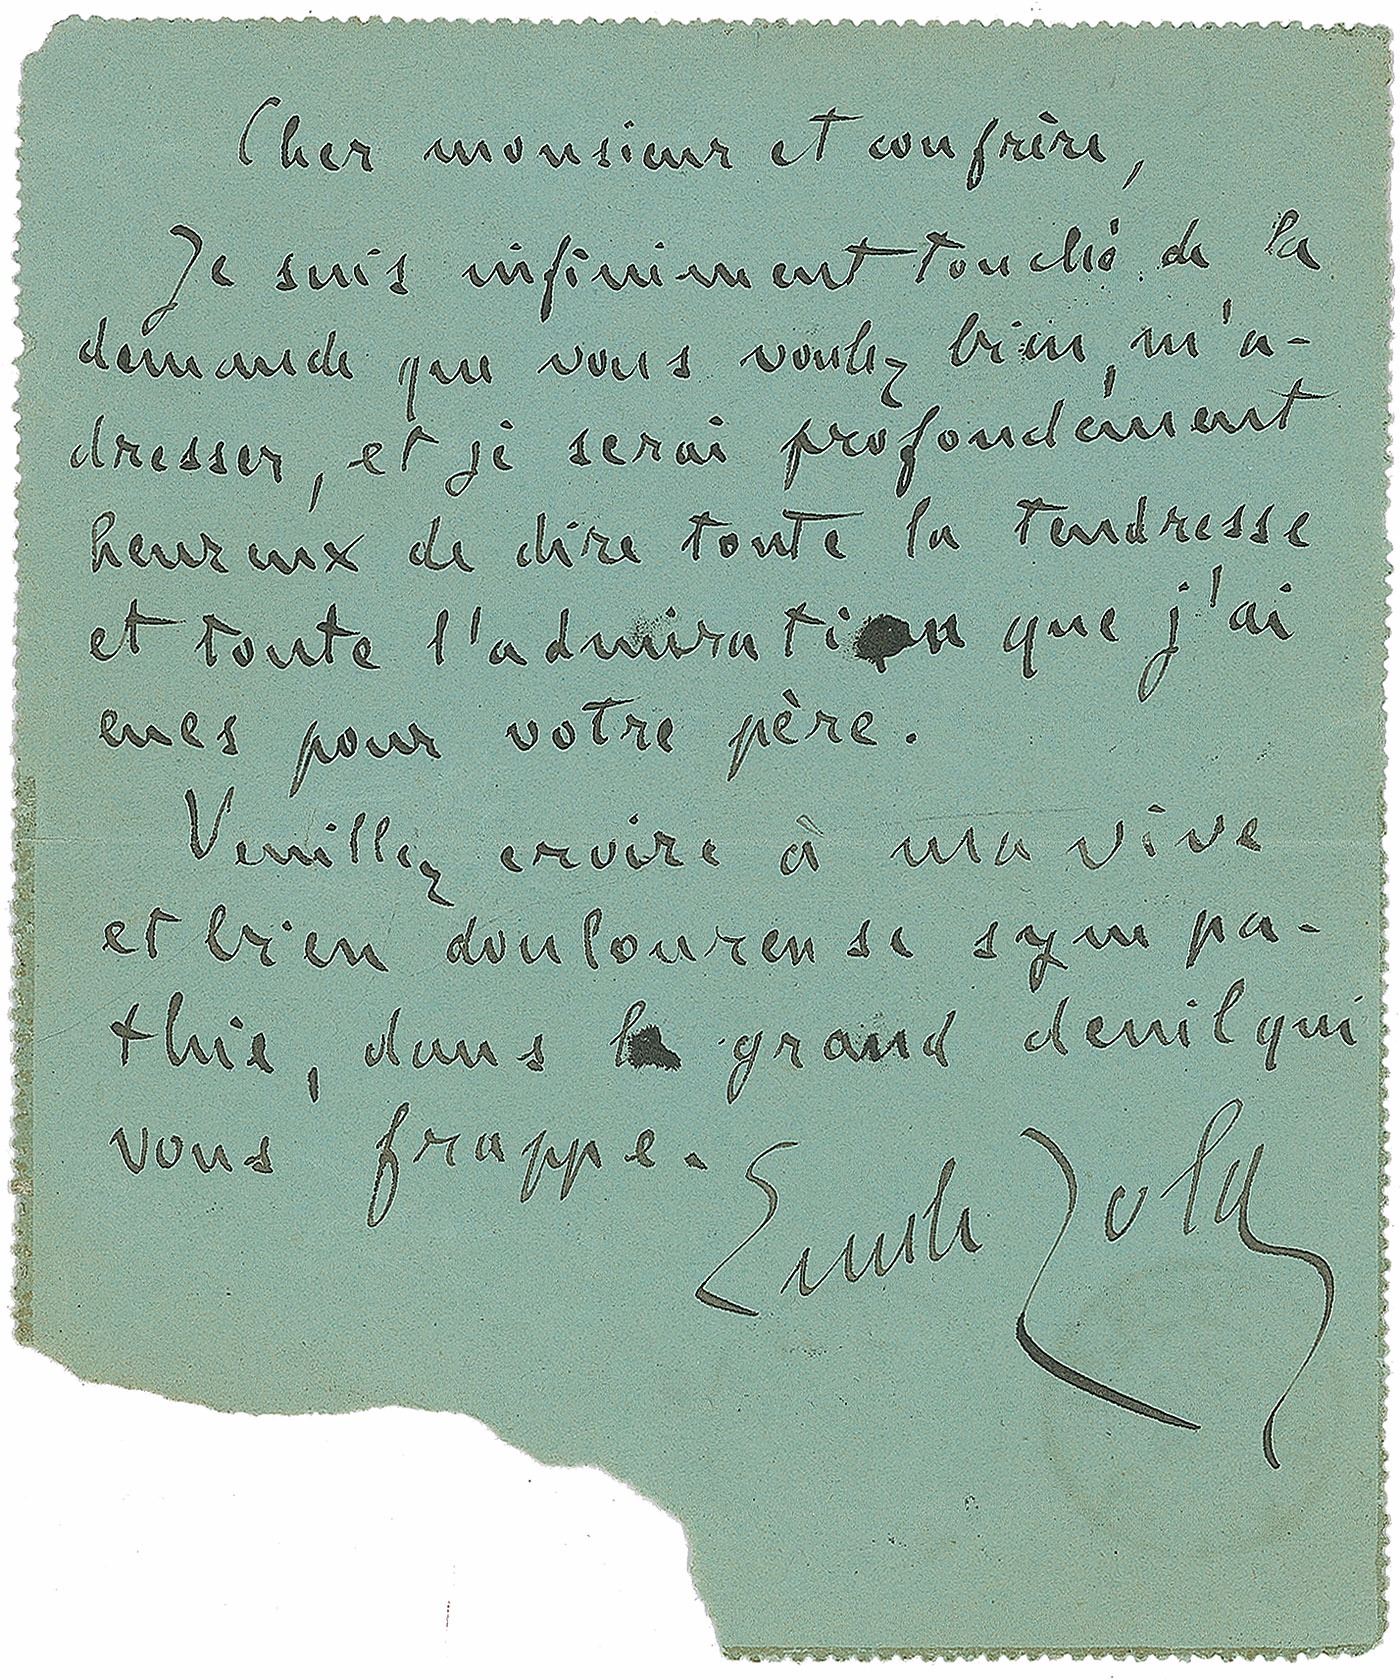 Cher monsieur et confrère,
Je suis infiniment touché de la
demande que vous voulez bien m'a-
dresser, et je serai profondément
heureux de dire toute la tendresse
et toute l'admiration que j'ai
eues pour votre père.
Veuillez croire à ma vive
et bien douloureuse sympa-
thie, dans le grand deuil qui
vous frappe.
Emile Zola